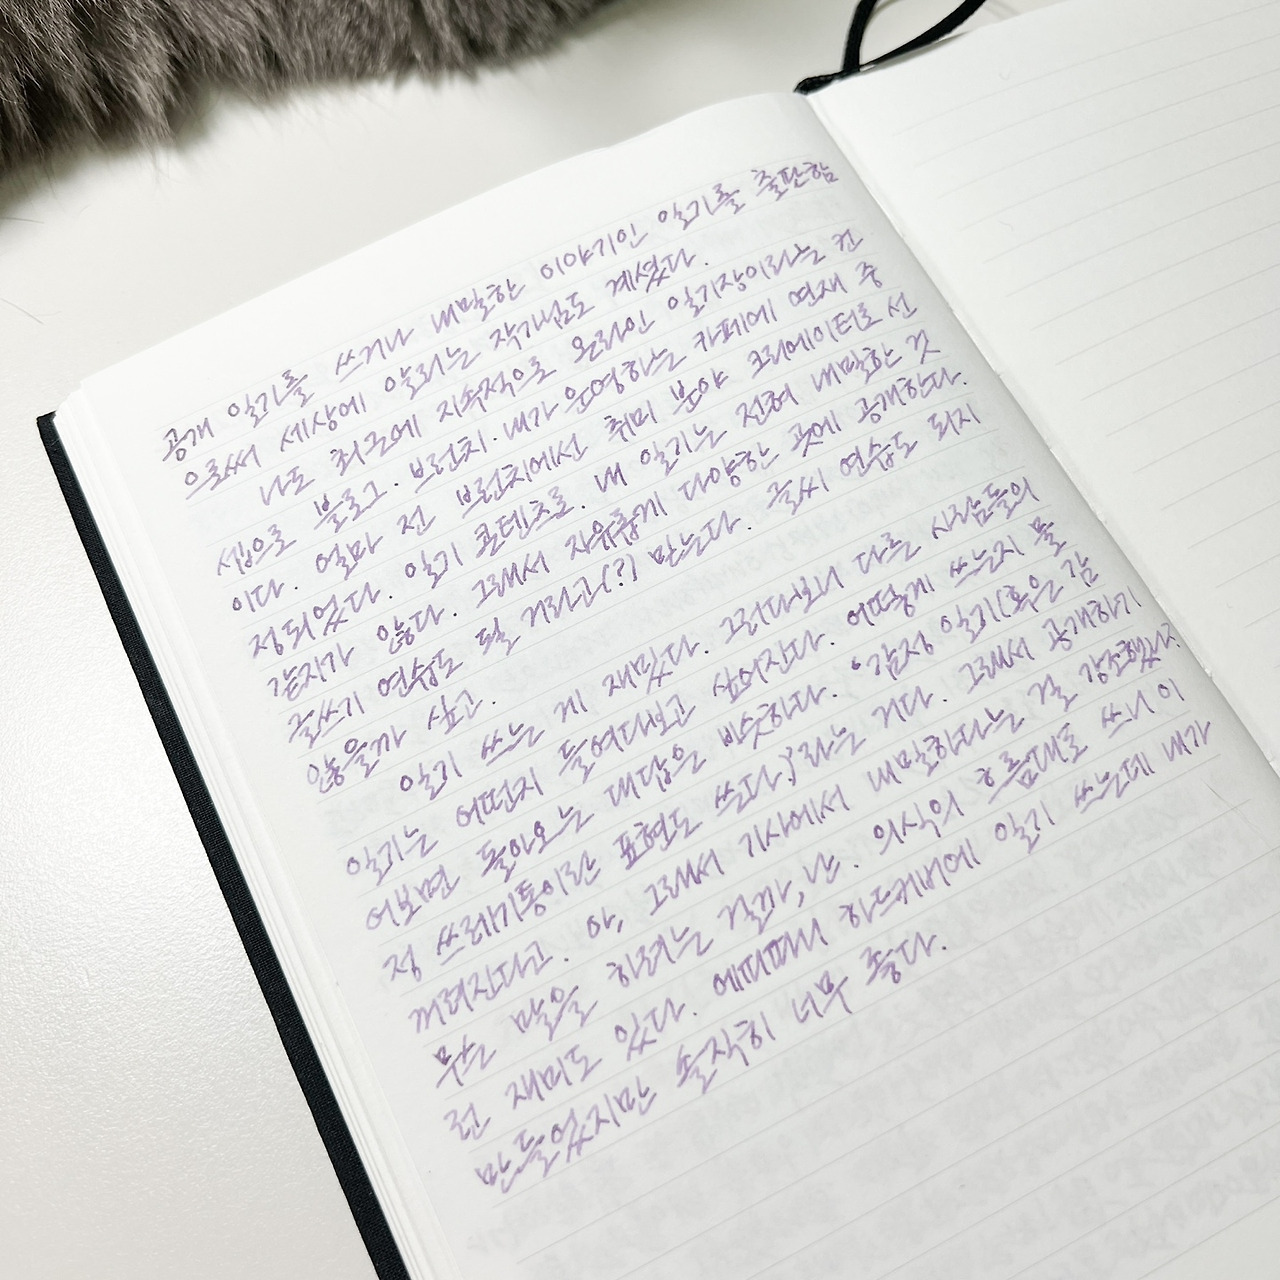 공개 일기를 쓰거나 내밀한 이야기인 일기를 출판함
으로써 세상에 알리는 작가님도 계셨다.
나도 최근에 지속적으로 온라인 일기장이라는 컨
셉으로 블로그. 브런치. 내가 운영하는 카페에 연재 중
이다. 얼마 전 브런치에선 취미 분야 크리에이터로 선
정되었다. 일기 콘텐츠로. 내 일기는 전혀 내밀한 것
같지가 않다. 그래서 자유롭게 다양한 곳에 공개한다.
글쓰기 연습도 될 거라고(?) 믿는다. 글씨 연습도 되지
않을까 싶고.
일기 쓰는 게 재밌다. 그러다보니 다른 사람들의
일기는 어떤지 들여다보고 싶어진다. 어떻게 쓰는지 물
어보면 돌아오는 대답은 비슷하다. '감정 일기(혹은 감
정 쓰레기통이란 표현도 쓴다)'라는 거다. 그래서 공개하기
꺼려진다고. 아, 그래서 기사에서 내밀하다는 걸 강조했나
무슨 말을 하려는 걸까, 난. 의식의 흐름대로 쓰니 이
런 재미도 있다. 에피파니 하드커버에 일기 쓰는데 내가
만들었지만 솔직히 너무 좋다.